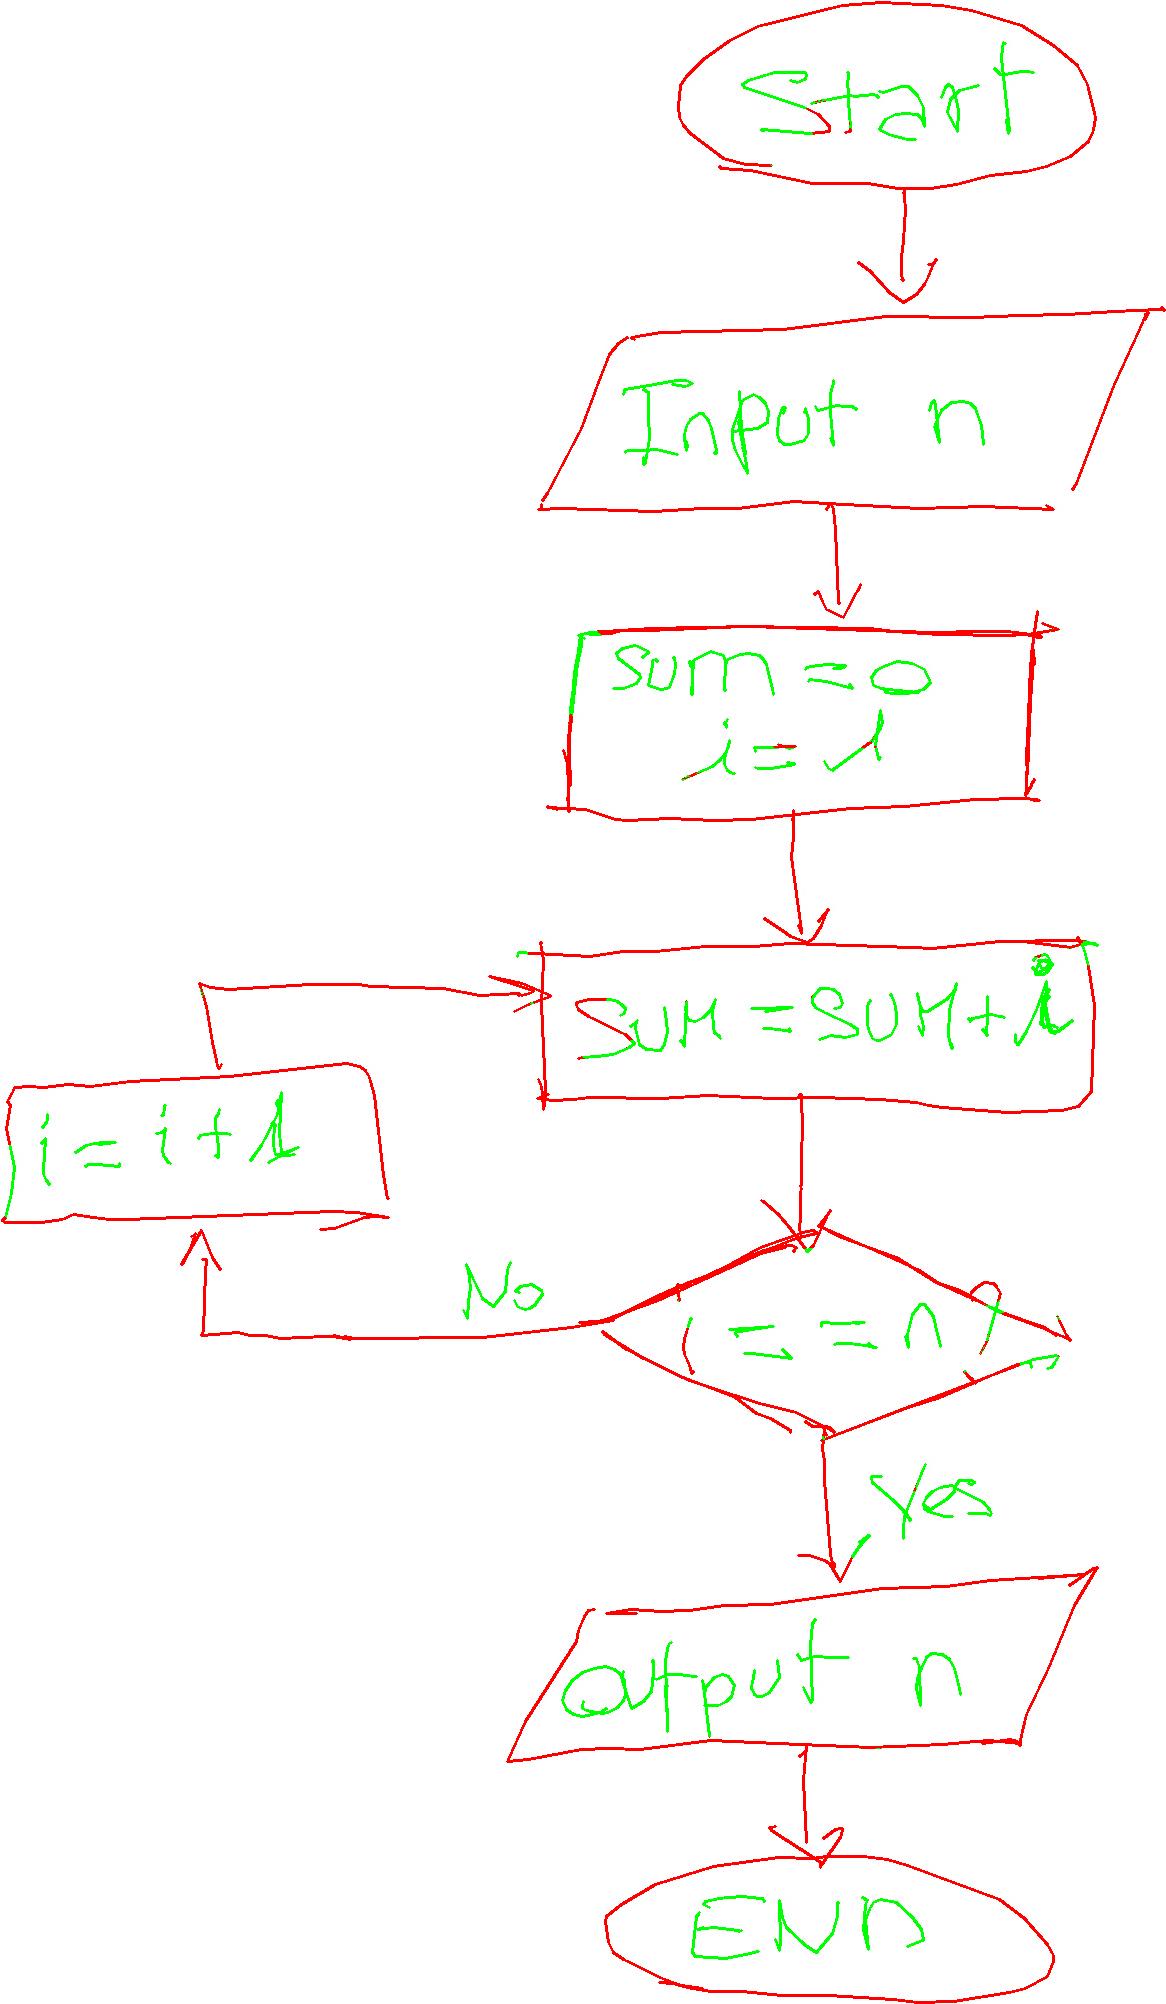 Start
Input n
sum = 0
i = 1
SUM = SUM + i
i = i + 1
No
( i = = n )
Yes
output n
END